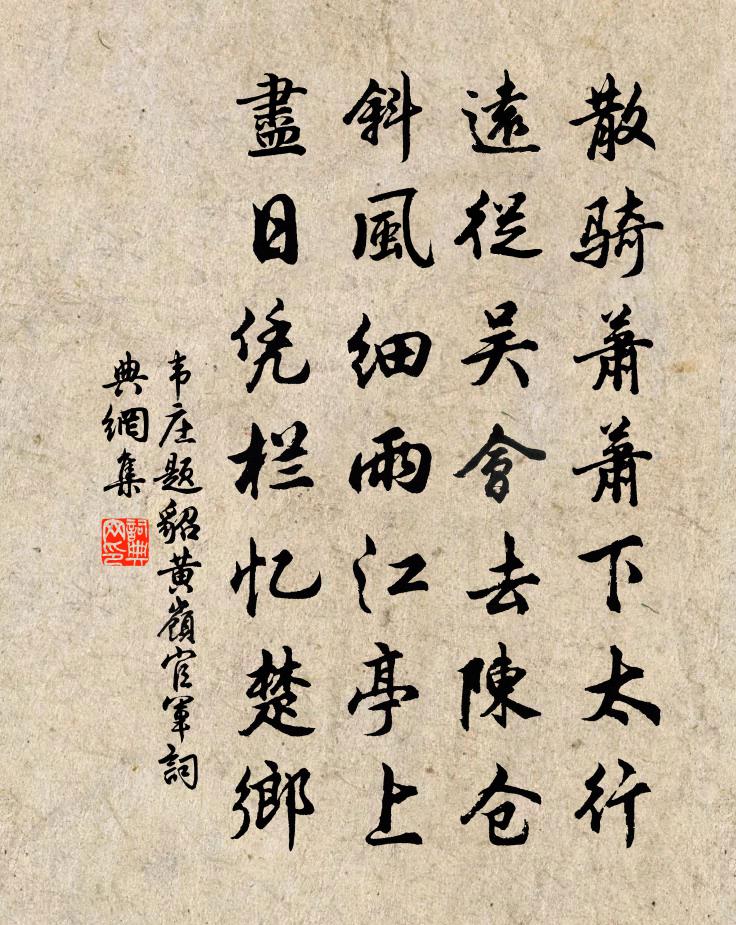 散骑蕭蕭下太行
遠從吴會去陳仓
斜風细雨江亭上
盡日凭栏忆楚鄉
韦庄题貂黄嶺官軍詞
典網集
詞典
网印